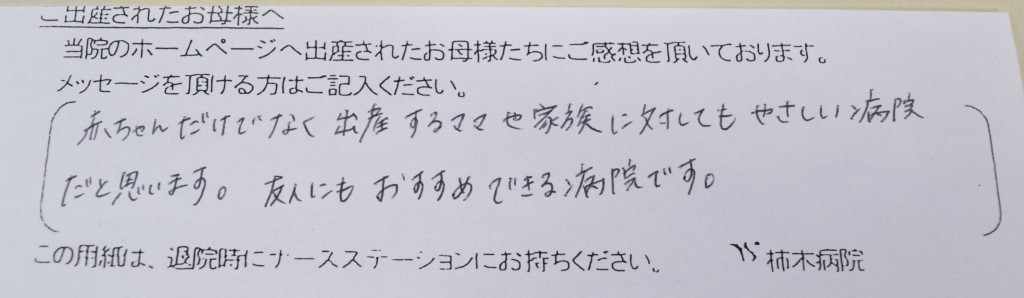 ご出産されたお母様へ
当院のホームページへ出産されたお母様たちにご感想を頂いております。
メッセージを頂ける方はご記入ください。
赤ちゃんだけでなく出産するママや家族に対してもやさしい病院
だと思います。友人にもおすすめできる病院です。
この用紙は、退院時にナースステーションにお持ちください。 柿木病院